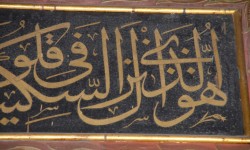 هو الذي انزل السكينة في قلو